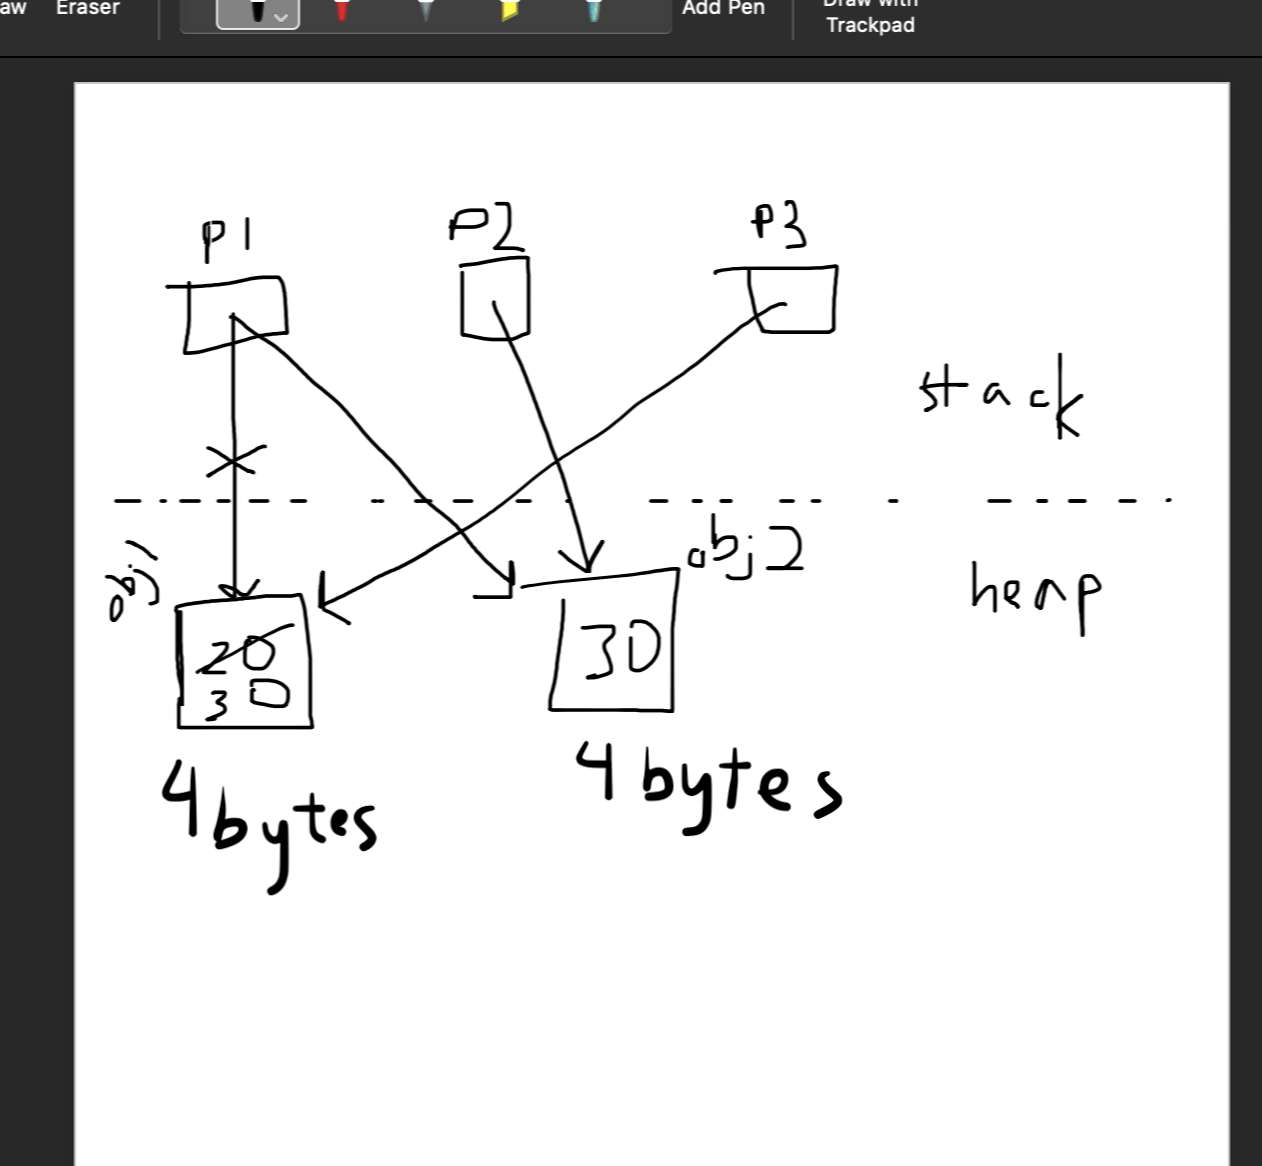 aw Eraser Add Pen Draw with
Trackpad
P1 P2 P3
stack
obj1 obj2
heap
20 30
30
4 bytes 4 bytes